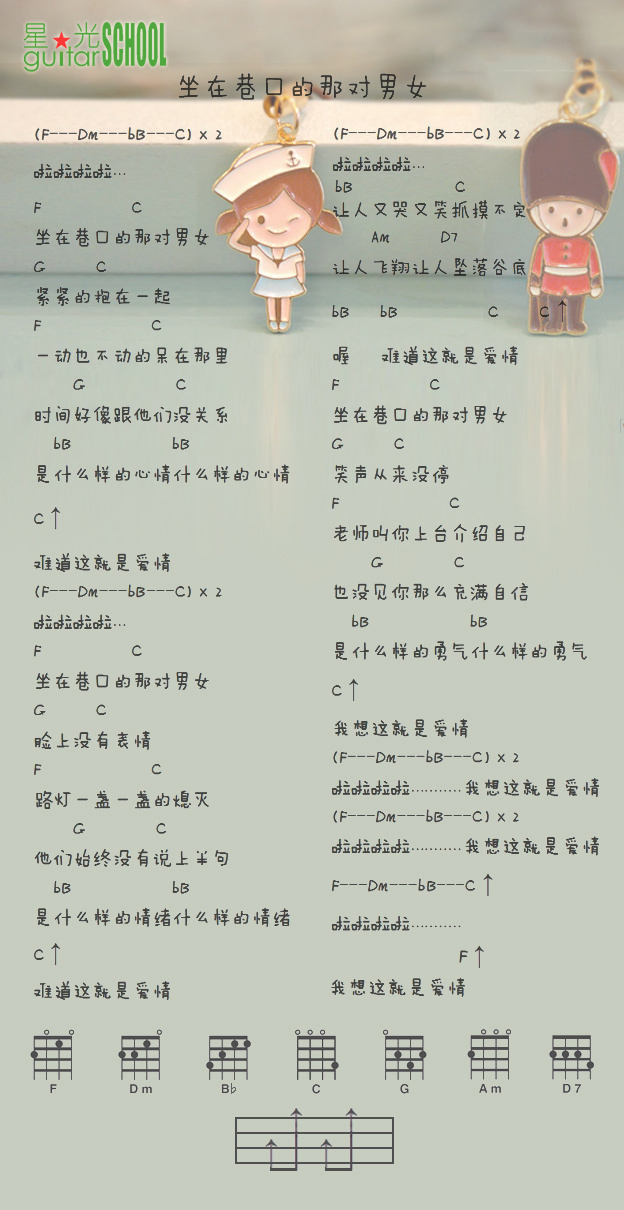 星★光
guitar SCHOOL
坐在巷口的那对男女
(F---Dm---bB---C) x 2
啦啦啦啦…
F C
坐在巷口的那对男女
G C
紧紧的抱在一起
F C
一动也不动的呆在那里
G C
时间好像跟他们没关系
bB bB
是什么样的心情什么样的心情
C↑
难道这就是爱情
(F---Dm---bB---C) x 2
啦啦啦啦…
F C
坐在巷口的那对男女
G C
脸上没有表情
F C
路灯一盏一盏的熄灭
G C
他们始终没有说上半句
bB bB
是什么样的情绪什么样的情绪
C↑
难道这就是爱情
(F---Dm---bB---C) x 2
啦啦啦啦…
bB C
让人又哭又笑抓摸不定
Am D7
让人飞翔让人坠落谷底
bB bB C C↑
喔 难道这就是爱情
F C
坐在巷口的那对男女
G C
笑声从来没停
F C
老师叫你上台介绍自己
G C
也没见你那么充满自信
bB bB
是什么样的勇气什么样的勇气
C↑
我想这就是爱情
(F---Dm---bB---C) x 2
啦啦啦啦··········我想这就是爱情
(F---Dm---bB---C) x 2
啦啦啦啦··········我想这就是爱情
F---Dm---bB---C↑
啦啦啦啦··········
F↑
我想这就是爱情
F Dm B♭ C G Am D7